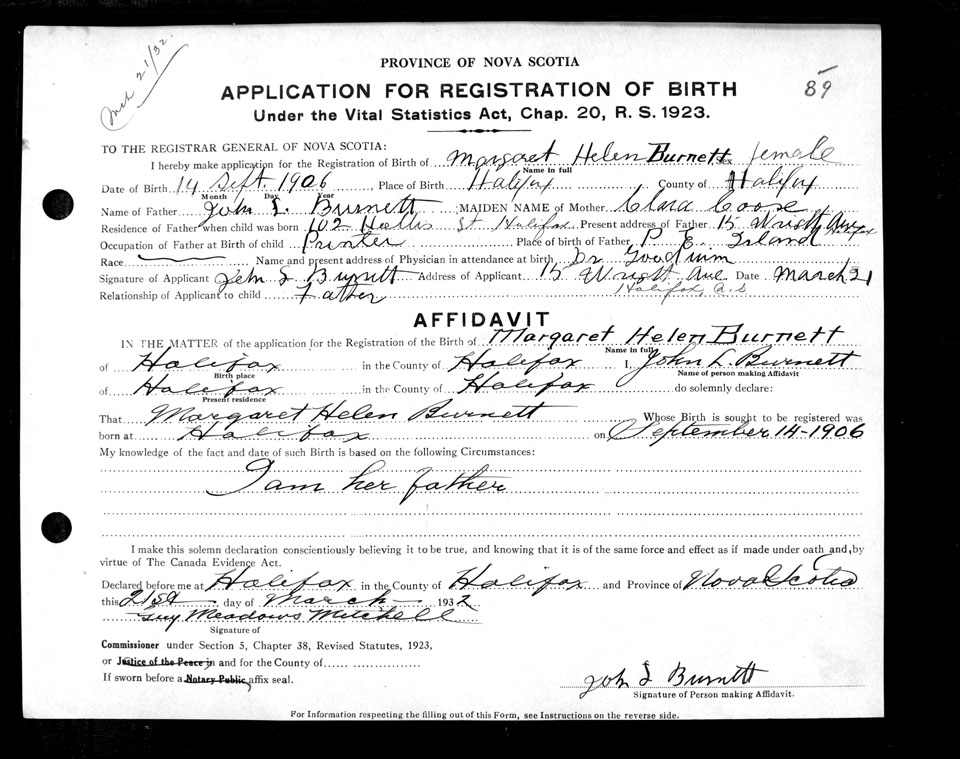 Mch 21/32.
PROVINCE OF NOVA SCOTIA
89
APPLICATION FOR REGISTRATION OF BIRTH
Under the Vital Statistics Act, Chap. 20, R. S. 1923.
TO THE REGISTRAR GENERAL OF NOVA SCOTIA:
I hereby make application for the Registration of Birth of Margaret Helen Burnett Sex female
Name in full
Date of Birth 14 Sept. 1906, Place of Birth Halifax County of Halifax
Month Day Year
Name of Father John L. Burnett MAIDEN NAME of Mother Clara
Residence of Father when child was born 102 Hollis St Halifax Present address of Father 15 Wright Ave Halifax
Occupation of Father at Birth of child Printer Place of birth of Father P E Island
Race Name and present address of Physician in attendance at birth Dr
Signature of Applicant John L Burnett Address of Applicant 15 Wright Ave Date March 21
Halifax, N.S
Relationship of Applicant to child Father
AFFIDAVIT
IN THE MATTER of the application for the Registration of the Birth of Margaret Helen Burnett
Name in full
of Halifax in the County of Halifax I, John L. Burnett
Birth place Name of person making Affidavit
of Halifax in the County of Halifax do solemnly declare:
Present residence
That Margaret Helen Burnett Whose Birth is sought to be registered was
born at Halifax on September 14-1906
My knowledge of the fact and date of such Birth is based on the following Circumstances:
I am her father
I make this solemn declaration conscientiously believing it to be true, and knowing that it is of the same force and effect as if made under oath and, by
virtue of The Canada Evidence Act.
Declared before me at Halifax in the County of Halifax and Province of Nova Scotia
this 21st day of March 1932
Guy Meadows Mitchell
Signature of
Commissioner under Section 5, Chapter 38, Revised Statutes, 1923,
or Justice of the Peace in and for the County of
If sworn before a Notary Public, affix seal.
John L Burnett
Signature of Person making Affidavit.
For Information respecting the filling out of this Form, see Instructions on the reverse side.